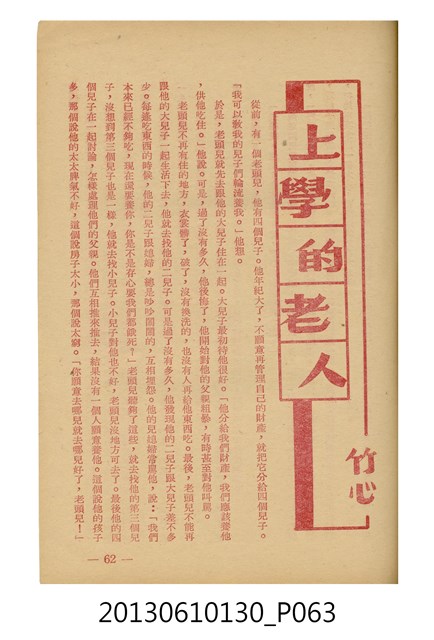 上學的老人
竹心
從前，有一個老頭兒，他有四個兒子。他年紀大了，不願意再管理自己的財產，就把它分給四個兒子。
「我可以敎我的兒子們輪流養我。」他想。
於是，老頭兒就先去跟他的大兒子住在一起。大兒子最初待他很好。「他分給我們財產，我們應該養他
，供他吃住。」他說。可是，過了沒有多久，他後悔了，他開始對他的父親粗暴，有時甚至對他叫罵。
老頭兒不再有住的地方，衣裳髒了，破了，沒有換洗的，也沒有人再給他東西吃。最後，老頭兒不能再
跟他的大兒子一起生活下去，他就去找他的二兒子。可是過了沒有多久，他發現他的二兒子跟大兒子差不多
少。每逢吃東西的時候，他的二兒子跟媳婦，總是吵吵鬧鬧的，互相埋怨。他的兒媳婦常罵他，說：「我們
本來已經不夠吃，現在還要養你，你是不是存心要我們都餓死？」老頭兒聽夠了這些，就去找他的第三個兒
子，沒想到第三個兒子也是一樣，他就去找小兒子。小兒子對他也不好，老頭兒沒地方可去了。最後他的四
個兒子在一起討論，怎樣處理他們的父親。他們互相推來推去，結果沒有一個人願意養他。這個說他的孩子
多，那個說他的太太脾氣不好，這個說房子太小，那個說太窮。「你願意去哪兒就去哪兒好了，老頭兒！」
— 62 —
20130610130_P063